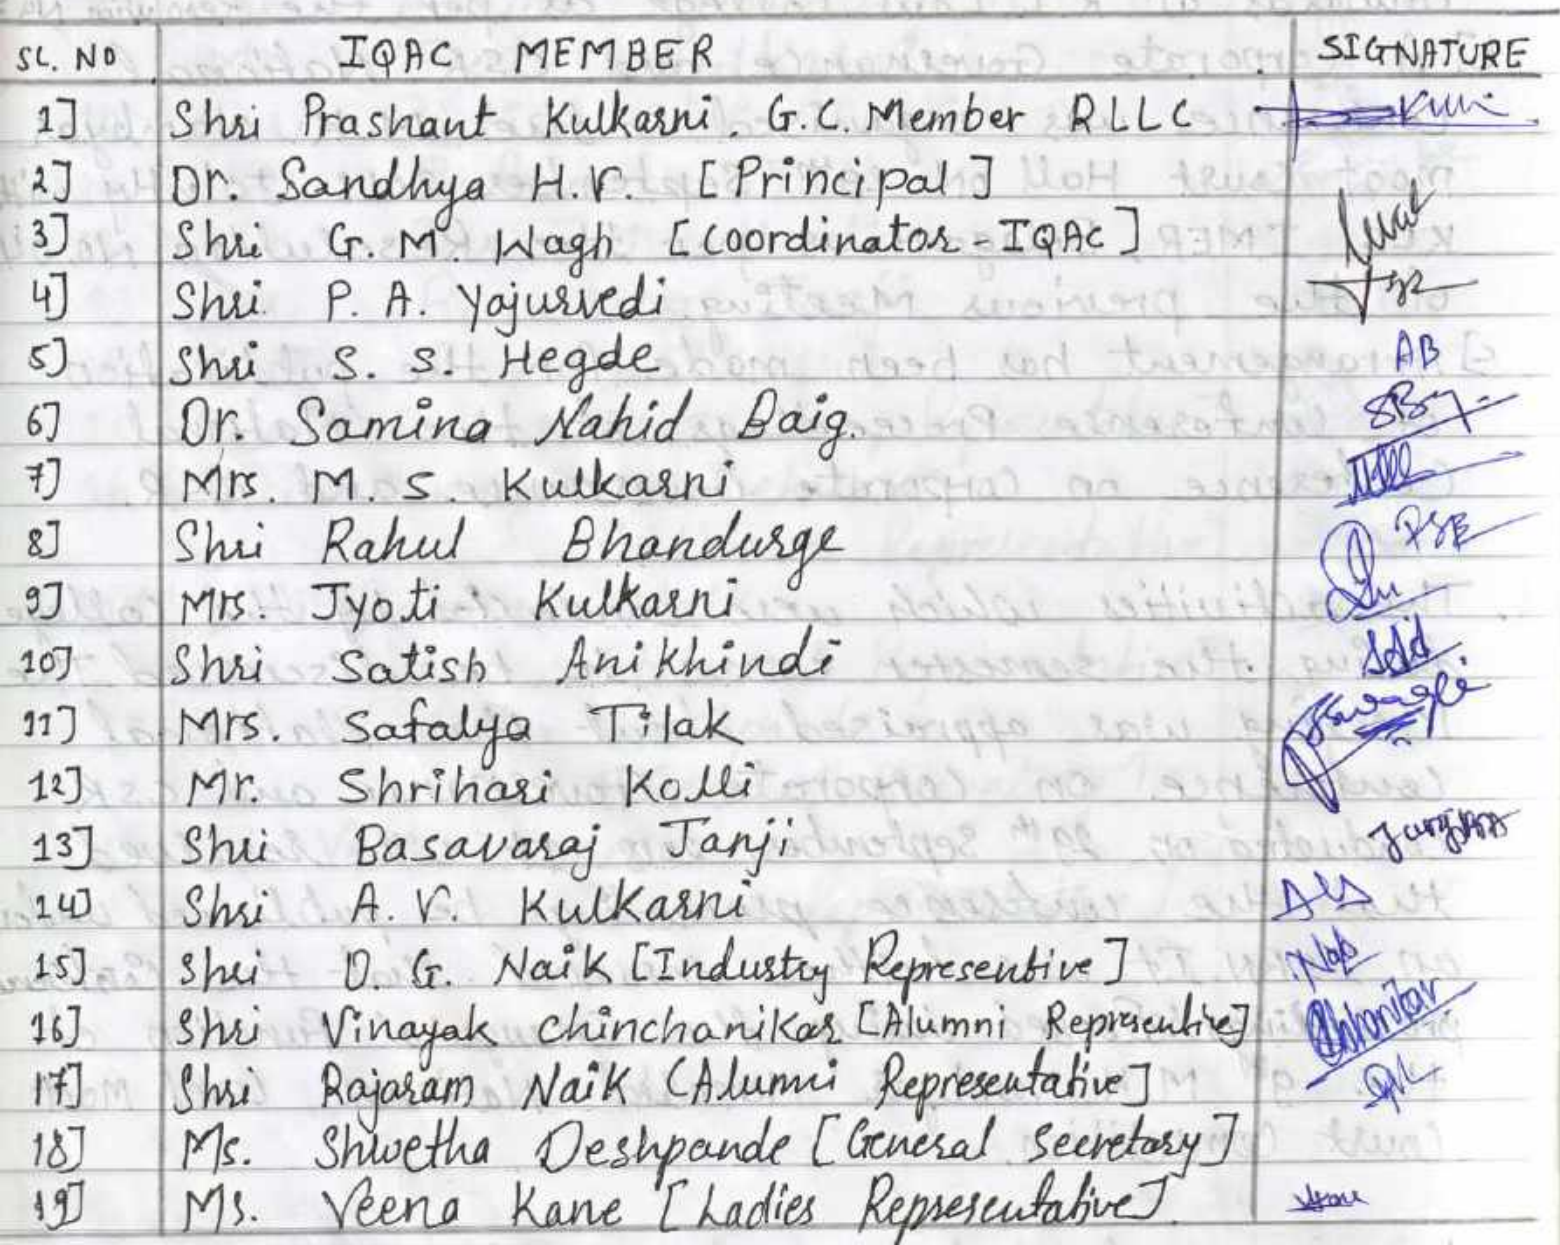 SL. NO IQAC MEMBER SIGNATURE
1] Shri Prashant Kulkarni. G.C. Member RLLC
2] Dr. Sandhya H.V. [Principal]
3] Shri G. M. Wagh [Coordinator-IQAC]
4] Shri P. A. Yajurvedi
5] Shri S. S. Hegde AB
6] Dr. Samina Nahid Baig.
7] Mrs. M. S. Kulkarni
8] Shri Rahul Bhandurge
9] Mrs. Jyoti Kulkarni
10] Shri Satish Anikhindi
11] Mrs. Safalya Tilak
12] Mr. Shrihari Kolli
13] Shri Basavaraj Janji
14] Shri A. V. Kulkarni
15] Shri D. G. Naik [Industry Representive]
16] Shri Vinayak Chinchanikar [Alumni Representive]
17] Shri Rajaram Naik [Alumni Representative]
18] Ms. Shwetha Deshpande [General Secretary]
19] Ms. Veena Kane [Ladies Representative]